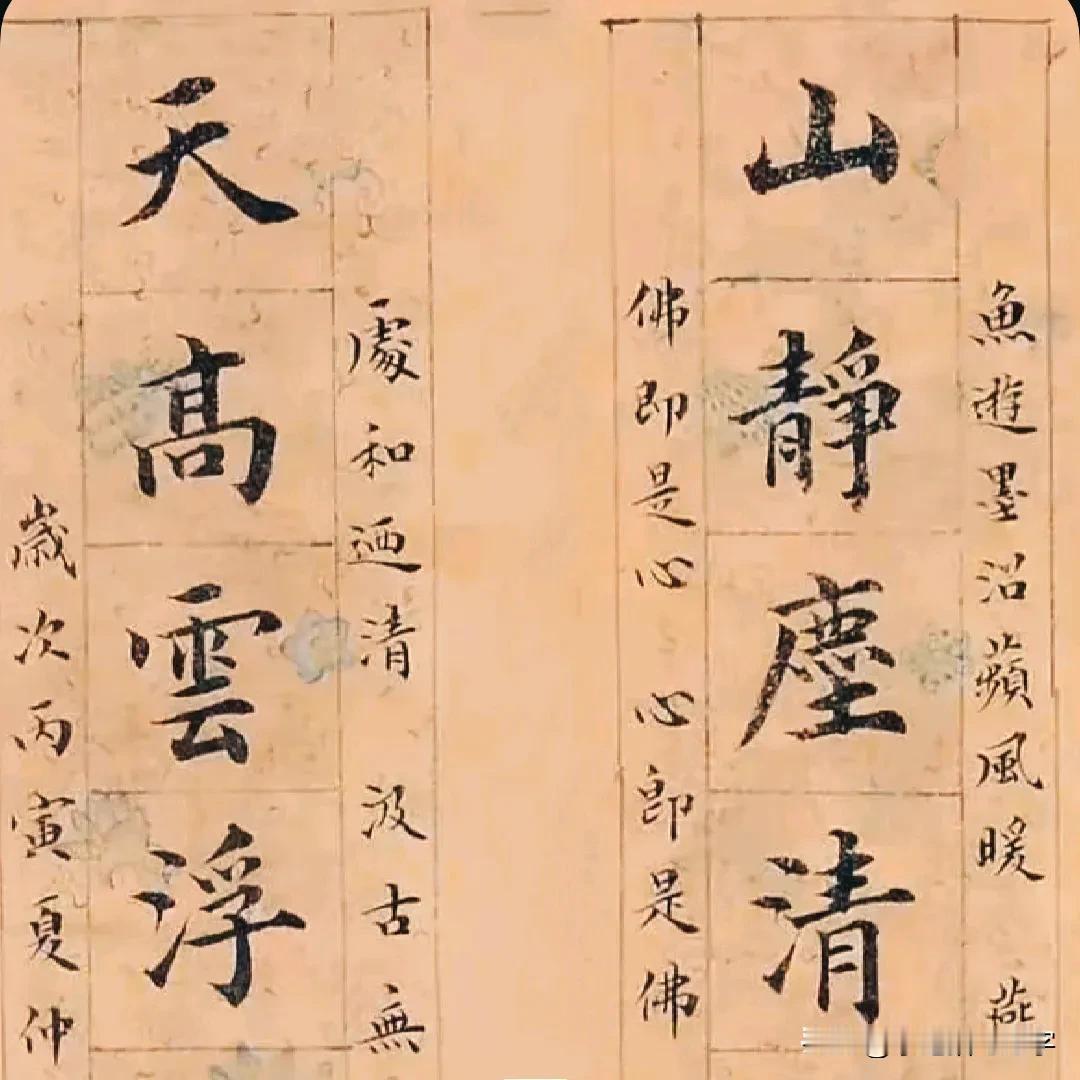 魚遊墨沼蘋風暖 燕
山靜塵清
佛即是心 心即是佛
處和迺清 汲古無
天高雲浮
歲次丙寅夏仲